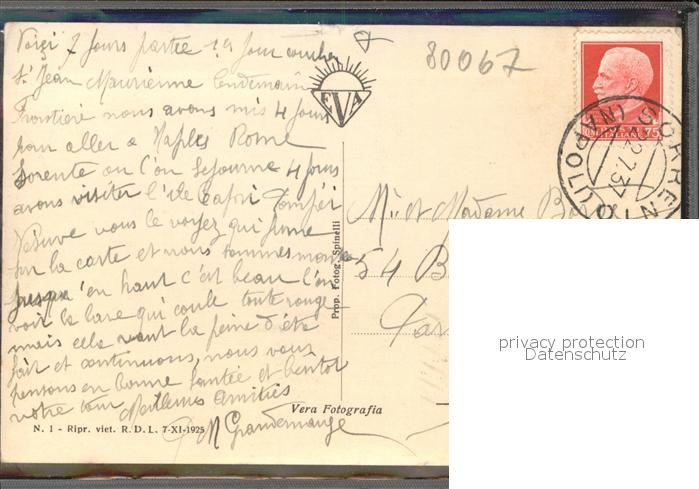 Voici 7 jours partie 1er jour coucher
St Jean Maurienne lendemain
Frontière nous avons mis 4 jours
pour aller a Naples Rome
Sorente ou l'on séjourne 4 jours
avons visiter l'île Capri Pompéi
Vésuve vous le voyez qui fume
sur la carte et nous sommes montés
jusqu'en haut c'est beau l'on
voir la lave qui coule toute rouge
mais cela vaut la peine d'être
fait et continuons, nous vous
pensons en bonne santée et bientôt
votre tour Meilleures amitiés
M Grandemange
80067
EVA
75
ITALIANE
SORRENTO (NAPOLI)
22.7.37
Mr et Madame
54 B
Prop. Fotog. Spinelli
Vera Fotografia
N. 1 - Ripr. viet. R. D. L. 7-XI-1925
privacy protection
Datenschutz